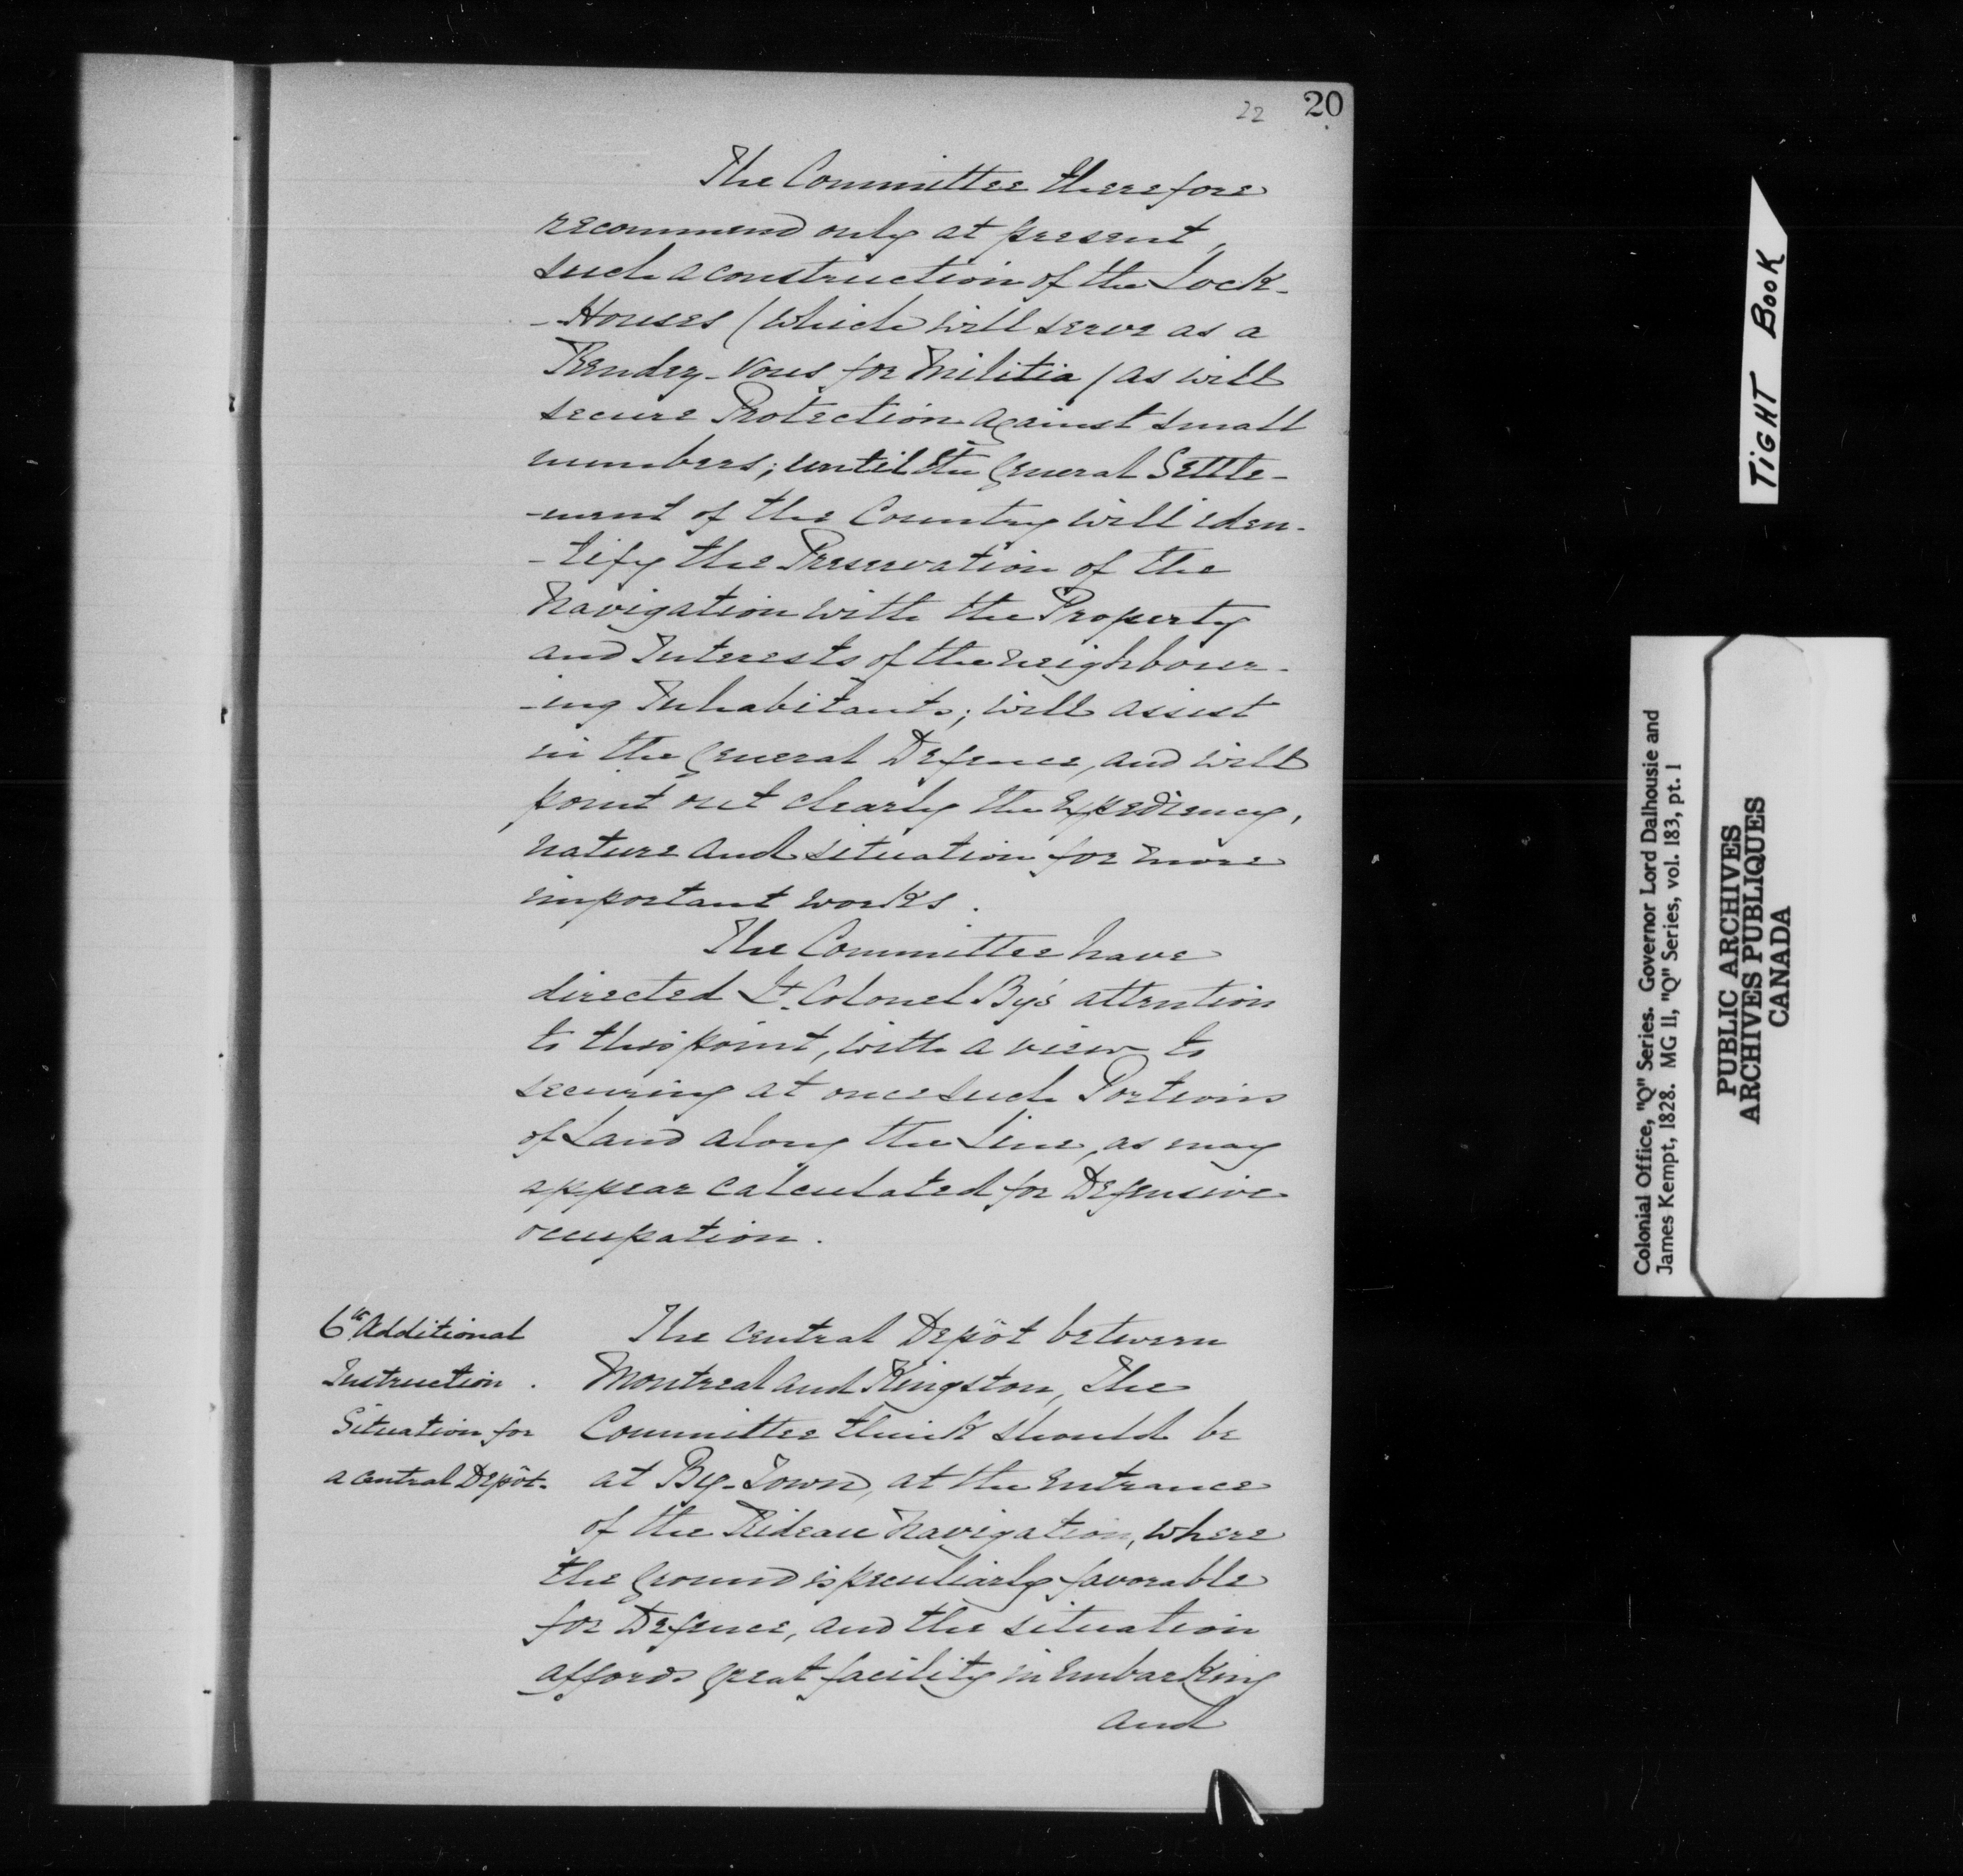 22 20
The Committee therefore
recommend only at present,
such a construction of the Lock-
-Houses (which will serve as a
Rendez-vous for Militia) as will
secure Protection against small
numbers; until the General Settle-
-ment of the Country will iden-
-tify the Preservation of the
Navigation with the Property
and Interests of the neighbour-
-ing Inhabitants; will assist
in the General Defence, and will
point out clearly the Expediency,
nature and situation for more
important works.
The Committee have
directed Lt. Colonel By's attention
to this point, with a view to
securing at once such Portions
of Land along the Line, as may
appear calculated for Defensive
occupation.
6th Additional
Instruction.
Situation for
a central Depôt.
The Central Depôt between
Montreal and Kingston, the
Committee think should be
at By-Town, at the Entrance
of the Rideau Navigation, where
the Ground is peculiarly favorable
for Defence, and the situation
affords great facility in Embarking
and
TIGHT BOOK
Colonial Office, "Q" Series. Governor Lord Dalhousie and
James Kempt, 1828. MG 11, "Q" Series, vol. 183, pt. 1
PUBLIC ARCHIVES
ARCHIVES PUBLIQUES
CANADA